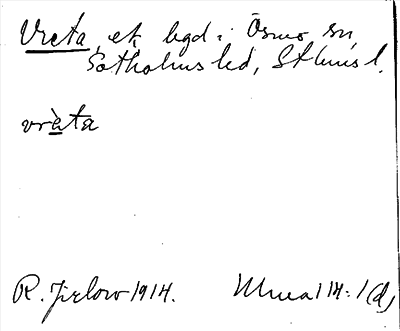 Vreta, ek. lgd i Ösmo sn,
Sotholms hd, Sthlms l.
vrèta
R. Jirlow 1914. Mua 114:1(d)